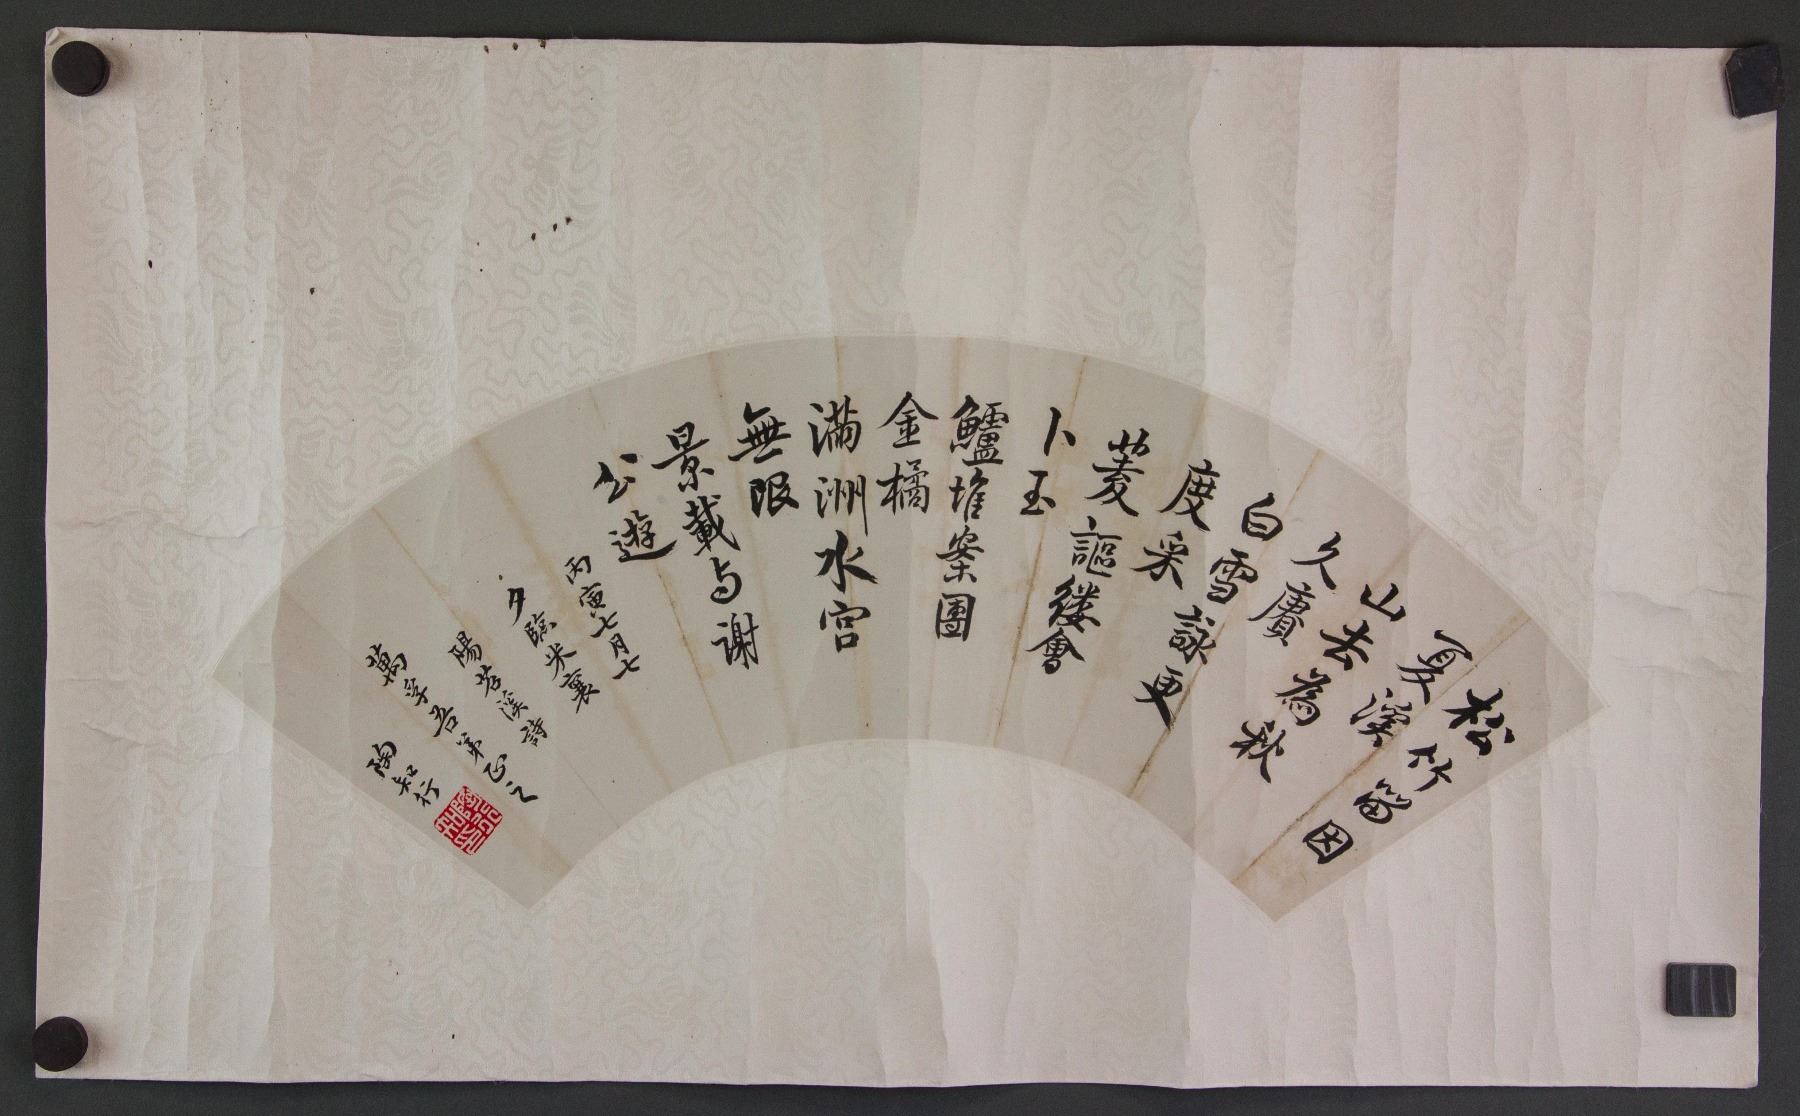 松竹畱因
夏溪
山去為秋
久賡
白雪詠更
度采
菱謳縷會
卜玉
鱸堆案團
金橘
滿洲水宮
無限
景載与謝
公遊
丙寅七月七
夕臨米襄
陽苕溪詩
萬孚吾弟正之
陶知行